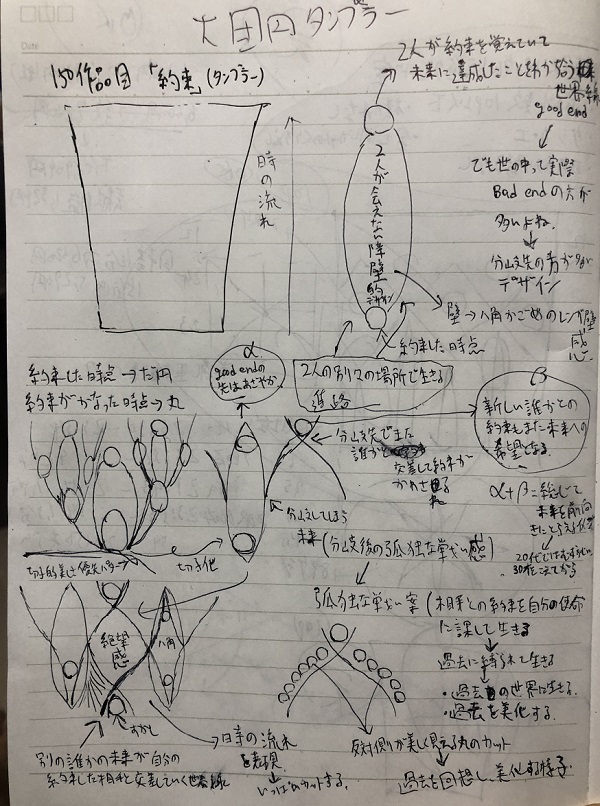 大団円タンブラー
150作品目「約束」(タンブラー)
時の流れ
2人が約束を覚えていて
未来に達成したことをわかち合う
世界線
good end
でも世の中って実際
Bad endの方が
多いよね。
分岐先の青が多い
デザイン
2人が会えない障壁
的デザイン
壁→八角かごめのレンガ壁
感
約束した時点
2人の別々の場所で生きる
進路
約束した時点→だ円
約束がかなった時点→丸
α
good endの
先はあざやか。
β
新しい誰かとの
約束もまた未来への
希望となる
分岐先でまた
誰かと
交差して約束が
かわされる
α+β=総じて
未来を前向
きにとらえる
20代では
30代こえてから
分岐してしまう
未来(分岐後の孤独な戦い感)
切子的美しさ優先
切子他
孤独な戦い案(相手との約束を自分の使命
に課して生きる
過去に縛られて生きる
・過去の世界に生きる。
・過去を美化する。
絶望
感
八角
すかし
時の流れ
を表現
いっぱいカットする。
別の誰かの未来が自分の
約束した相手と交差していく世界線
反対側が美しく見える丸のカット
過去を回想し、美化する様子